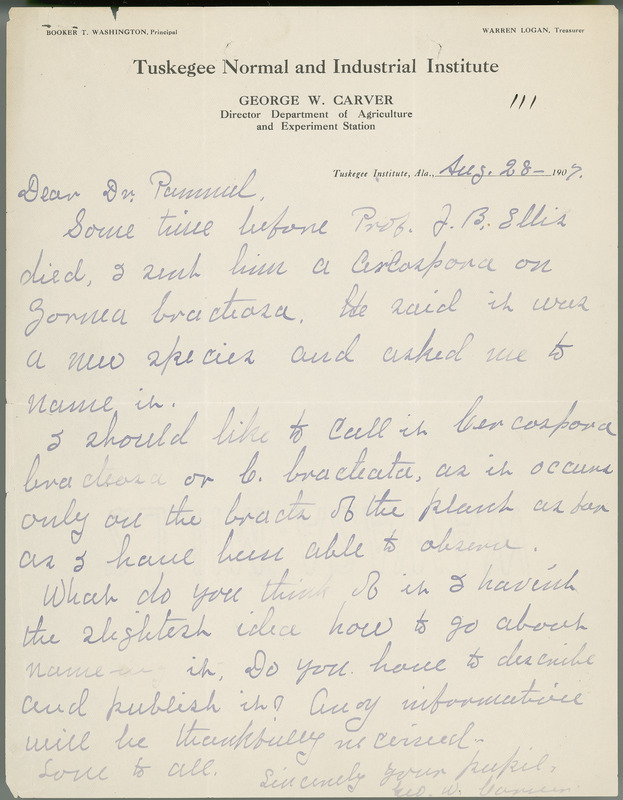 BOOKER T. WASHINGTON, Principal
WARREN LOGAN, Treasurer
Tuskegee Normal and Industrial Institute
GEORGE W. CARVER
Director Department of Agriculture
and Experiment Station
111
Tuskegee Institute, Ala., Aug. 28- 1907.
Dear Dr. Pammel,
Some time before Prof. J. B. Ellis
died, I sent him a Cercospora on
Zornea bracteosa. He said it was
a new species and asked me to
name it.
I should like to call it Cercospora
bracteosa or C. bracteata, as it occurs
only on the bracts of the plant as far
as I have been able to observe.
What do you think of it I havent
the slightest idea how to go about
nameing it, Do you have to describe
and publish it? Any information
will be thankfully received-
Love to all. Sincerely your pupil,
Geo. W. Carver